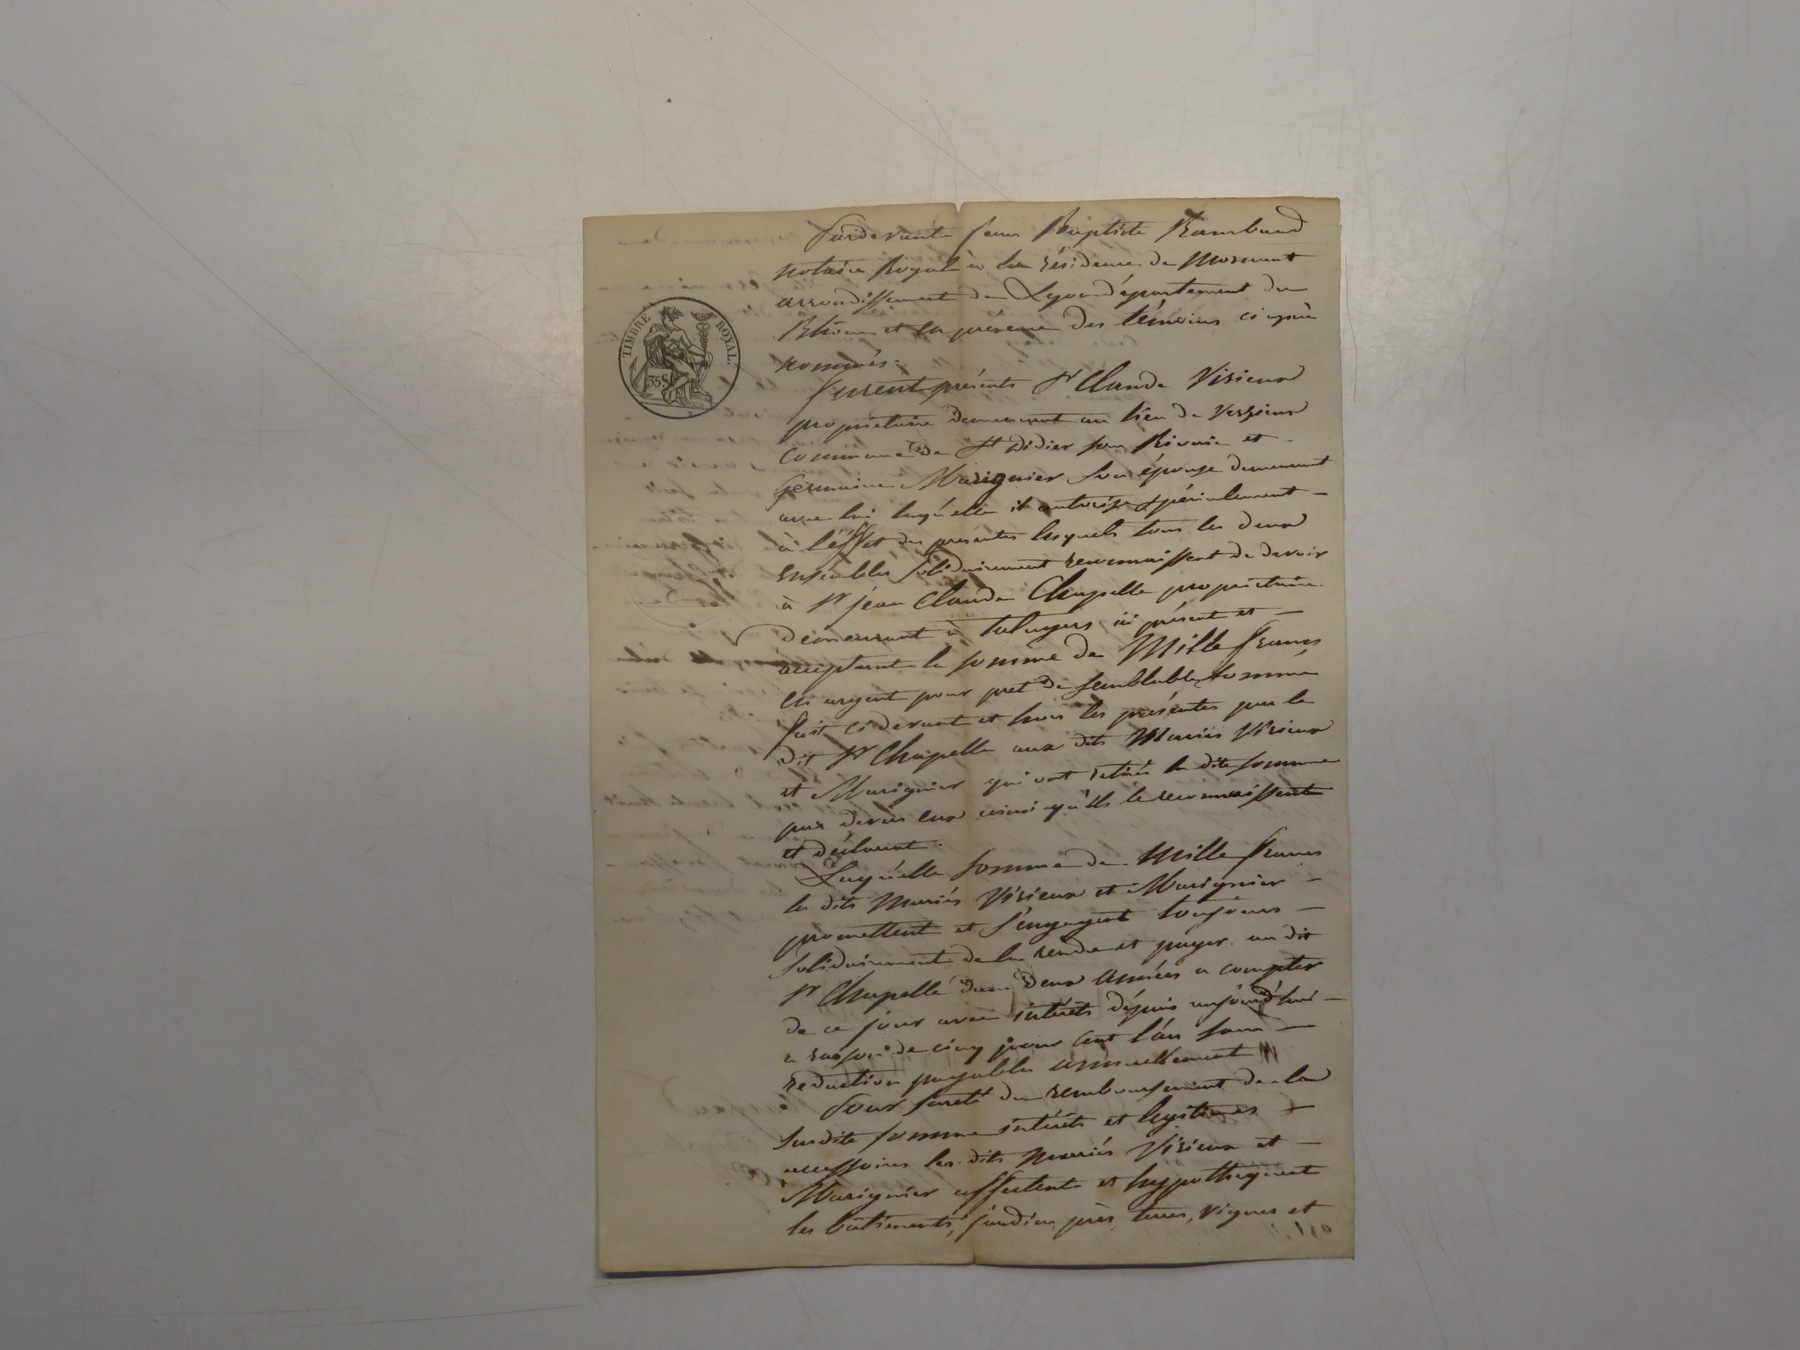 Pardevant Jean Baptiste Rambaud
notaire Royal à la résidence de Mornant
arrondissement de Lyon département du
Rhône et en présence des témoins ci après
nommés.
TIMBRE ROYAL.
35 C
furent présents Sr Claude Virieux
propriétaire demeurant au lieu de
commune de St Didier sou Riverie et
germaine Marignier son épouse demeurant
avec lui laquelle il autorise spécialement
à l'effet des présentes lesquels tous les deux
ensembles solidairement reconnaissent de devoir
à Sr jean Claude Chapelle propriétaire
demeurant à taluyers ici présent et
acceptant la somme de Mille francs
en argent pour pret de semblable somme
fait ci devant et hors les présentes par le
dit Sr Chapelle aux dits Mariés Virieux
et Marignier qui ont retirés la dite somme
par devers eux ainsi qu'ils le reconnaissent
et déclarent.
Laquelle somme de Mille francs
les dits Mariés Virieux et Marignier
promettent et s'engagent toujours
solidairement de la rendre et payer au dit
Sr Chapelle dans deux années a compter
de ce jour avec intérêts dépuis aujourd'hui
a raison de cinq pour cent l'an sans
reduction payables annuellement
Pour sureté du remboursement de la
susdite somme intérêts et legitimes
accessoires les dits Mariés Virieux et
Marignier affectent et hypothequent
les bâtiments, jardin, près, terres, vignes et